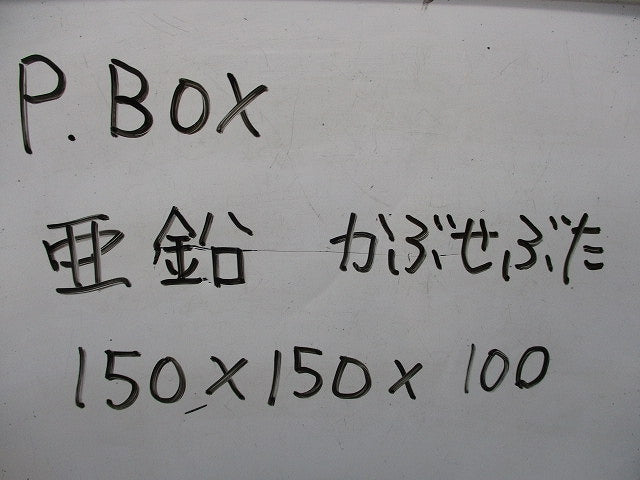 P.BOX
亜鉛 かぶせぶた
150×150×100